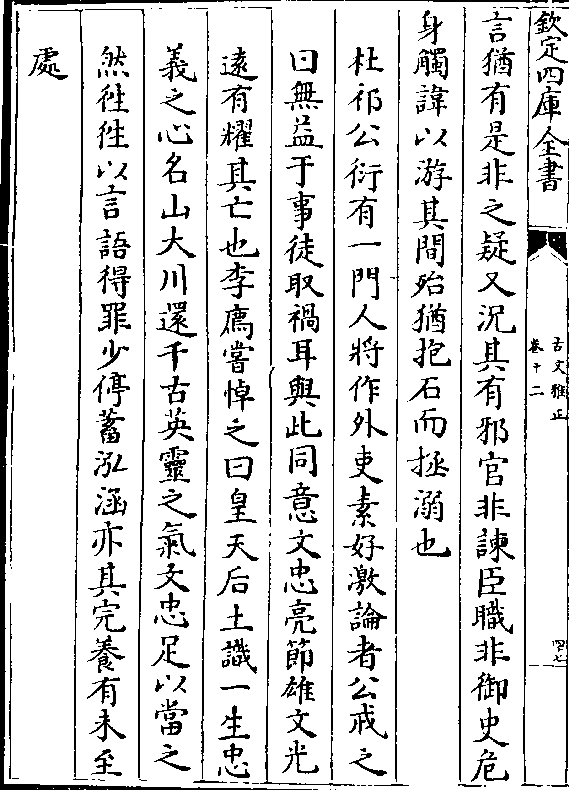 欽定四庫全書
古文雅正
卷十二
四七
言猶有是非之疑又況其有邪官非諫臣職非御史危
身觸諱以游其間殆猶抱石而拯溺也
杜祁公衍有一門人將作外吏素好激論者公戒之
曰無益于事徒取禍耳與此同意文忠亮節雄文光
遠有耀其亡也李廌嘗悼之曰皇天后土識一生忠
義之心名山大川還千古英靈之氣文忠足以當之
然徃徃以言語得罪少停蓄泓涵亦其完養有未至
處